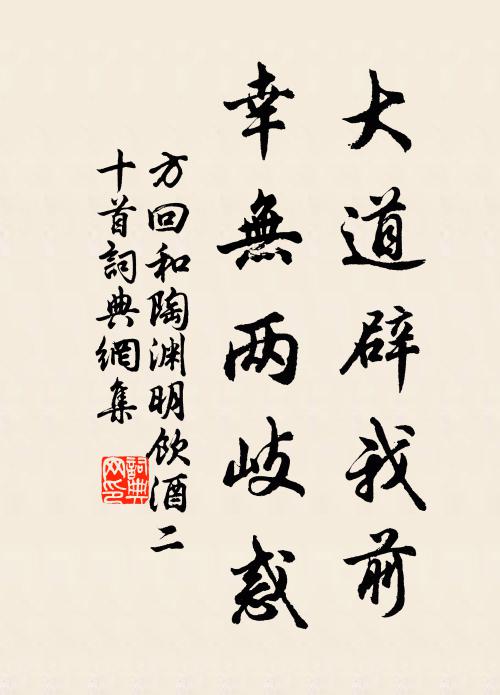 大道辟我前
幸無两岐惑
方回和陶渊明饮酒二
十首詞典網集
詞典
网印